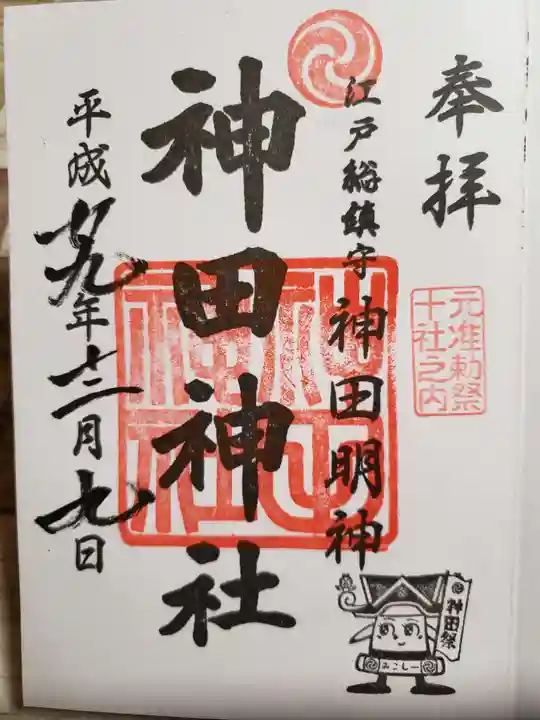 奉拝
元准勅祭
十社之内
江戸総鎮守 神田明神
神田神社
平成廿九年十二月九日
神田祭
みこしー